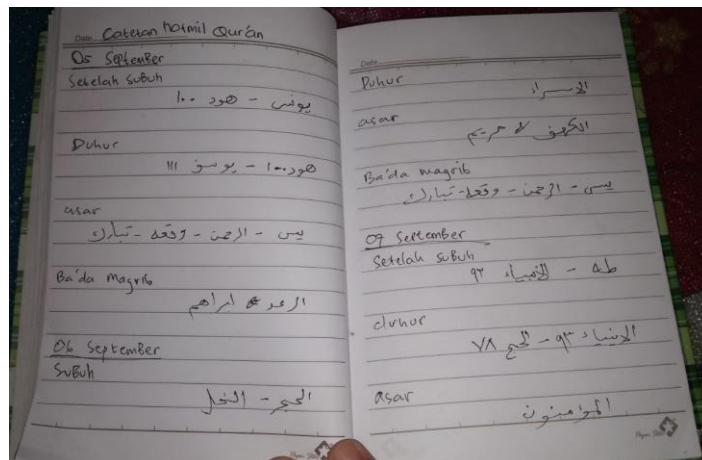 Date Catetan hotmil Qur'an
05 September
Setelah subuh
يونس - هود ١٠٠
Duhur
هود ١٠٠ - يوسف ١١١
asar
يس - الرحمن - وقعه - تبارك
Ba'da Magrib
الرعد ابراهم
06 September
Subuh
الحجر - النحل
Date
Duhur
الاسراء
asar
الكهف مريم
Ba'da magrib
يس - الرحمن - وقعة - تبارك
September
Setelah subuh
طه - الأنبياء ٩٢
duhur
الانبياء ٩٣ - الحج ٧٨
asar
المؤامنون